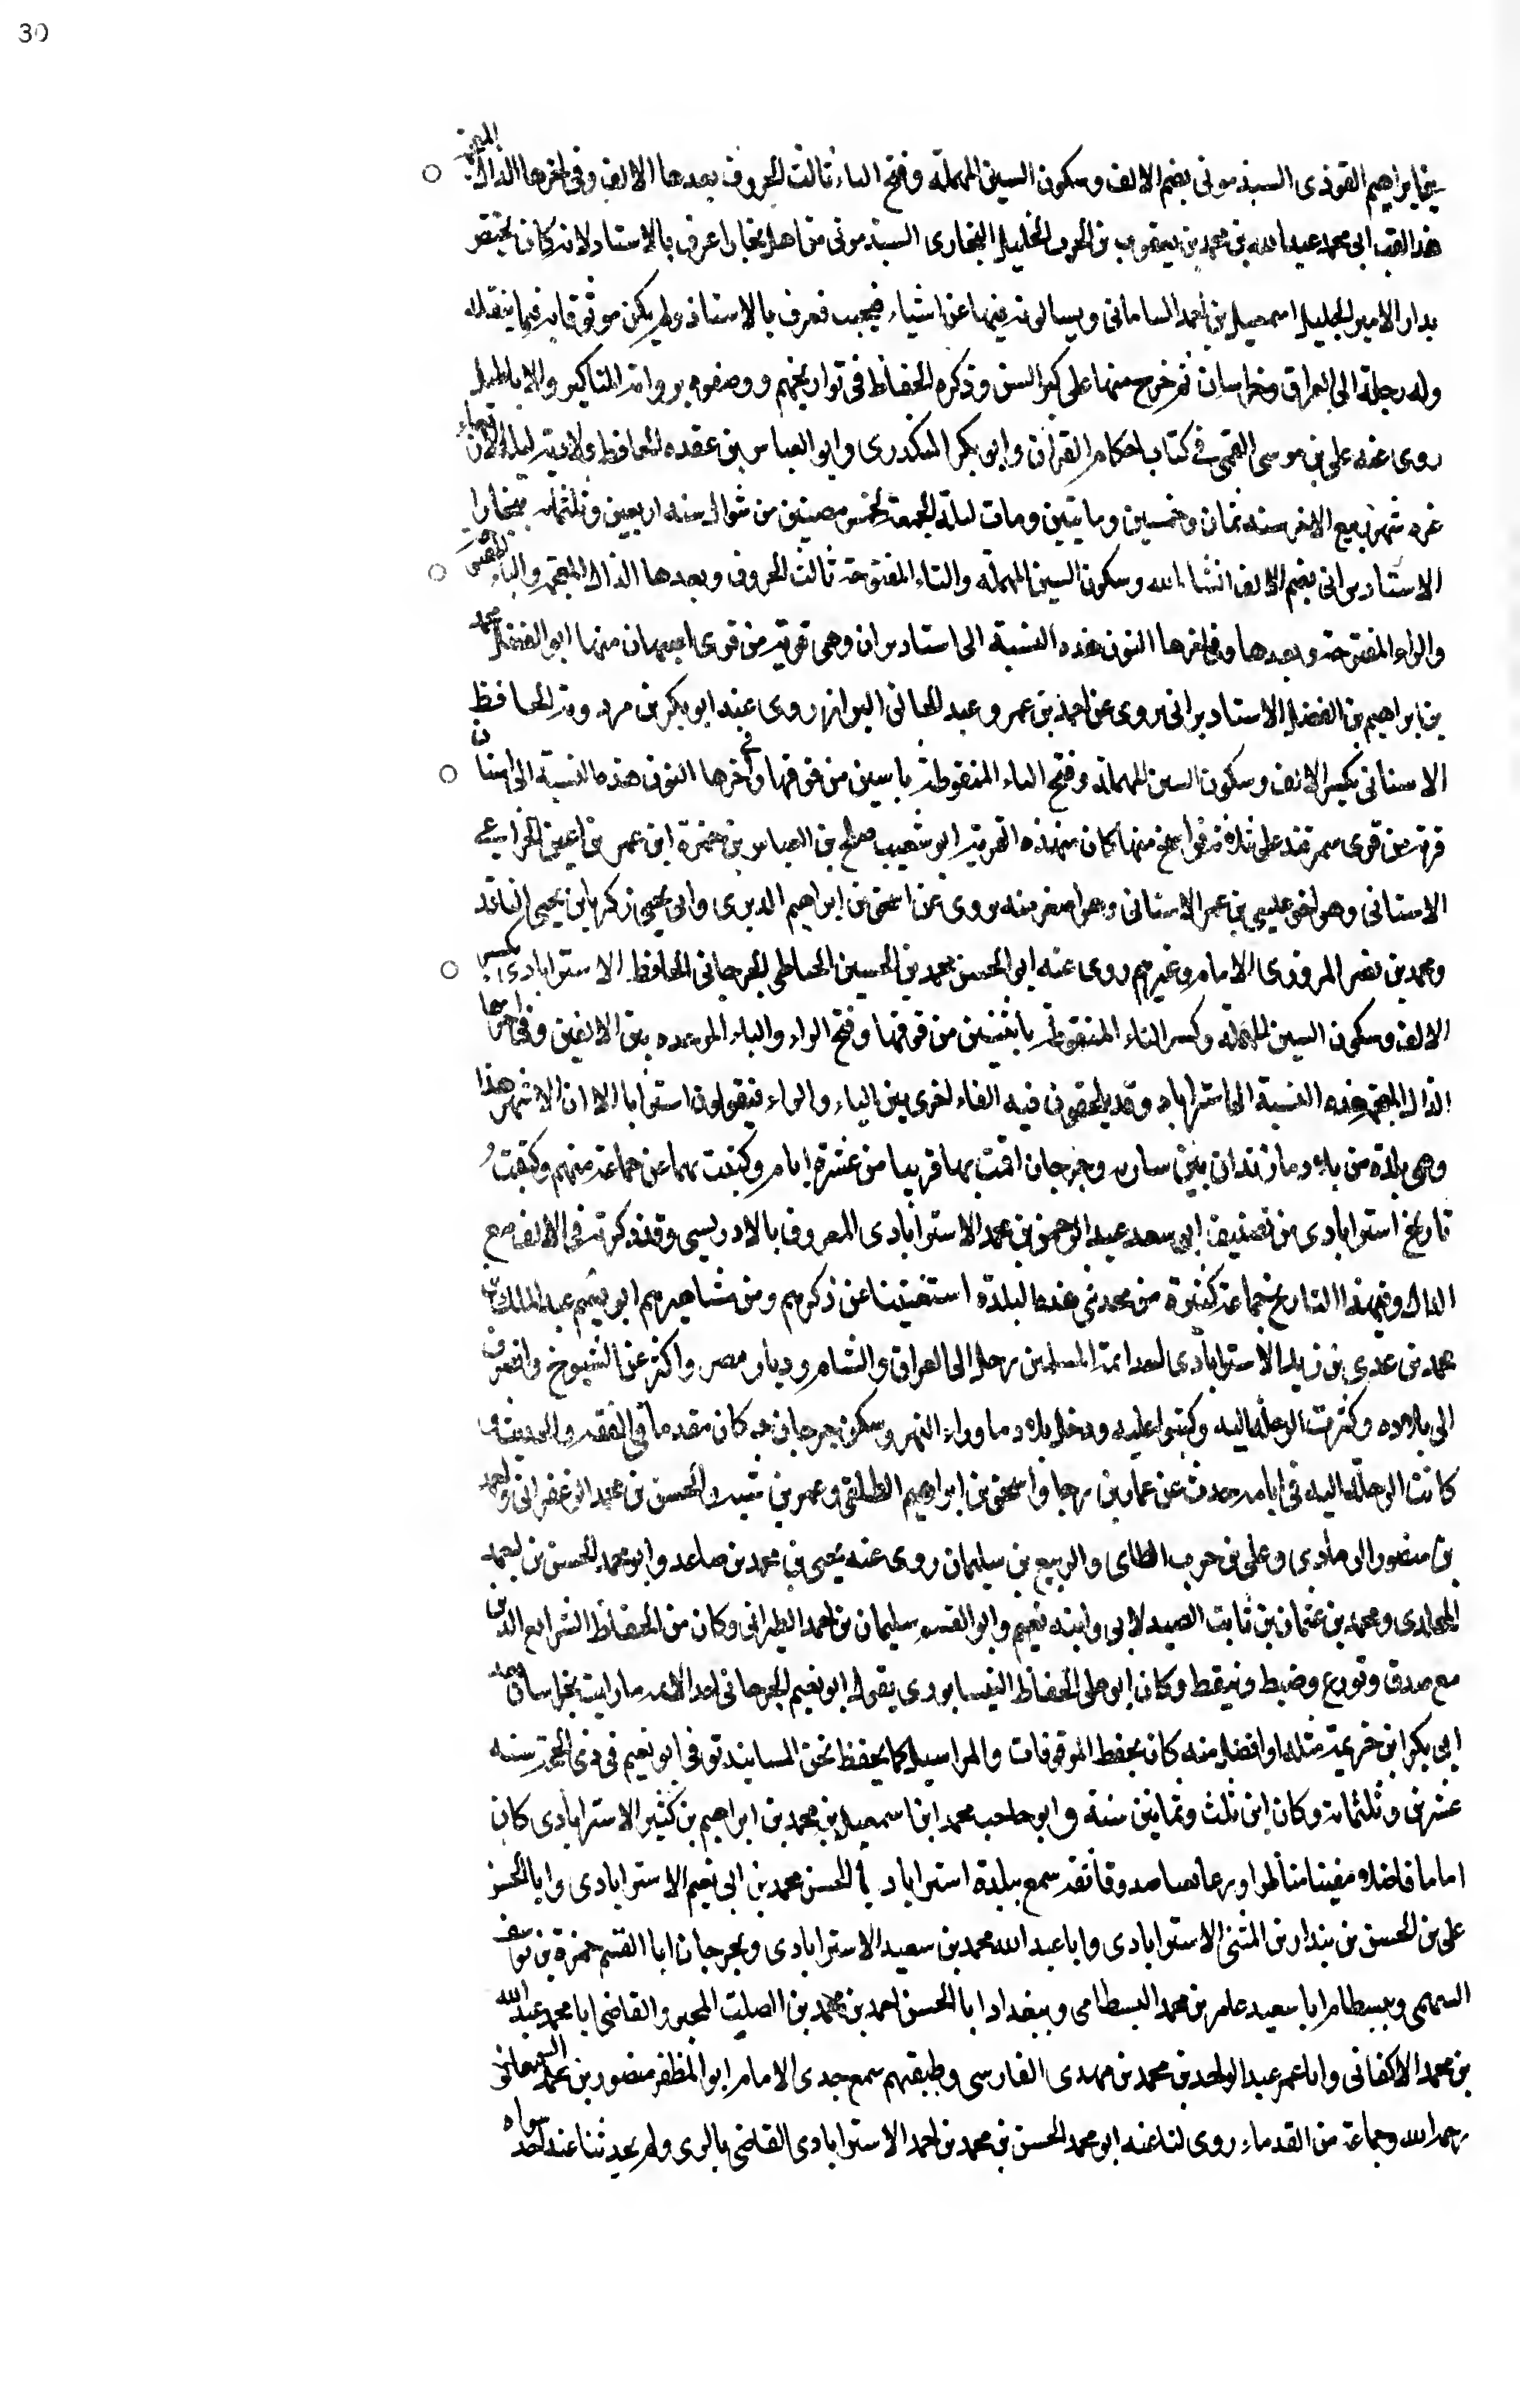 30
بن ابراهيم القوذى السبذمونى بضم الالف وسكون السين المهملة وفتح التاء ثالث الحروف بعدها الالف وفى اخرها الذال المعجمة
هذا لقب ابى محمد عبد الله بن محمد بن يعقوب بن الحرث الخليل البخارى السبذمونى من اهل بخارا عرف بالاستاد لانه كان يختص
بدار الامير الجليل اسمعيل بن احمد السامانى ويسالونه فيها عن اشياء فيجيب فعرف بالاستاذ ولم يكن موثوقا به فيما ينقله
وله رحلة الى العراق وخراسان ثم خرج منها على كبر السن وذكره الحفاظ فى تواريخهم ووصفوه برواية المناكير والاباطيل
روى عنه على بن موسى القمى فى كتاب احكام القران وابو بكر المنكدرى وابو العباس بن عقده الحافظ ولادته ليلة الاربعاء
غره شهر ربيع الاخر سنه ثمان وخمسين ومايتين ومات ليلة الجمعة لخمس مضين من شوال سنه اربعين وثلثمايه ببخارا
الاستاذبرانى بضم الالف انشاالله وسكون السين المهملة والتاء المفتوحة ثالث الحروف وبعدها الذال المعجمة والباء
والراء المفتوحة وبعدها وفى اخرها النون هذه النسبة الى استاذبران وهى قرية من قرى اصبهان منها ابو الفضل محمد
بن ابراهيم بن الفضل الاستاذبرانى يروى عن احمد بن عمرو عبد الخالق البزاز روى عنه ابو بكر بن مردويه الحافظ
الاستانى بكسر الالف وسكون السين المهملة وفتح التاء المنقوطة باثنين من فوقها وفى اخرها النون هذه النسبة الى استان
قرية من قرى سمرقند على ثلاثة فراسخ منها كان من هذه القرية ابو شعيب صالح بن العباس بن حمزة ابن عمر بن اعين الخزاعى
الاستانى وهو اخو عيسى بن عمر الاستانى وهو اصغر منه يروى عن اسحق بن ابراهيم الدبرى وابى يحيى زكريا بن يحيى الناقد
ومحمد بن نصر المروزى الامام وغيرهم روى عنه ابو الحسن محمد بن الحسين الخياطى الجرجانى الحافظ الاسترابادى بكسر
الالف وسكون السين المهملة وكسر التاء المنقوطة باثنتين من فوقها وفتح الراء والباء الموحده بين الالفين وفى اخرها
الذال المعجمة هذه النسبة الى استراباد وقد يلحقون فيه الفاء اخرى بين التاء والراء فيقولون استاراباد الا ان الاشهر هذا
وهى بلدة من بلاد مازندان بين ساريه وجرجان اقمت بها قريبا من عشرة ايام وكتبت بها عن جماعة منهم وكتبت
تاريخ استرابادى من تصنيف ابى سعد عبد الرحمن بن محمد الاسترابادى المعروف بالادريسى وقد ذكرته فى الالف مع
الدال وفى هذا التاريخ جماعة كثيرة من محدثى هذه البلدة استغنينا عن ذكرهم ومن مشاهيرهم ابو نعيم عبد الملك بن
محمد بن عدى بن زيد الاسترابادى احد ائمة المسلمين رحل الى العراق والشام وديار مصر واكثر عن الشيوخ وانصرف
الى بلاده وكثرت الرحلة اليه وكتبوا عليه ودخل بلاد ماوراء النهر وسكن جرجان وكان مقدما فى الفقه والحديث و
كانت الرحلة اليه فى ايامه حدث عن عمار بن رجا واسحق بن ابراهيم الطلقى وعمر بن شبه والحسن بن محمد الزعفرانى واحمد
بن منصور الرمادى وعلى بن حرب الطاى والربيع بن سليمان روى عنه يحيى بن محمد بن صاعد وابو محمد الحسن بن احمد
المخلدى ومحمد بن عثمان بن ثابت الصيدلانى وابنه نعيم وابو القسم سليمان بن احمد الطبرانى وكان من الحفاظ لشرايع الدين
مع صدق وتورع وضبط وتيقظ وكان ابو على الحفاظ النيسابورى يقول ابو نعيم الجرجانى احد الائمه مارايت بخراسان بعد
ابى بكر ابن خزيمة مثله او افضل منه كان يحفظ الموقوفات والمراسيل كما يحفظ نحن المسانيد توفى ابو نعيم فى ذى الحجة سنه
عشرين وثلثماية وكان ابن ثلث وثمانين سنة وابو حاجب محمد ابن اسمعيل بن محمد بن ابراهيم بن كثير الاسترابادى كان
اماما فاضلا مفتيا مناظرا ورعا صدوقا ثقة سمع ببلدة استراباد ابا الحسن محمد بن ابى نعيم الاسترابادى وابا الحسن
على بن الحسن بن بندار بن المثنى الاسترابادى وابا عبد الله محمد بن سعيد الاسترابادى وبجرجان ابا القسم حمزة بن يوسف
السهمى وببسطام ابا سعيد عامر بن محمد البسطامى وببغداد ابا الحسن احمد بن محمد بن الصلت المجبر والقاضى ابا محمد عبد الله
بن محمد الاكفانى وابا عمر عبد الواحد بن محمد بن مهدى الفارسى وطبقتهم سمع جدى الامام ابو المظفر منصور بن محمد السمعانى
رحمه الله وجماعة من القدماء روى لنا عنه ابو محمد الحسن بن محمد بن احمد الاسترابادى القاضى بالرى ولم يحدثنا عنه احد سواه